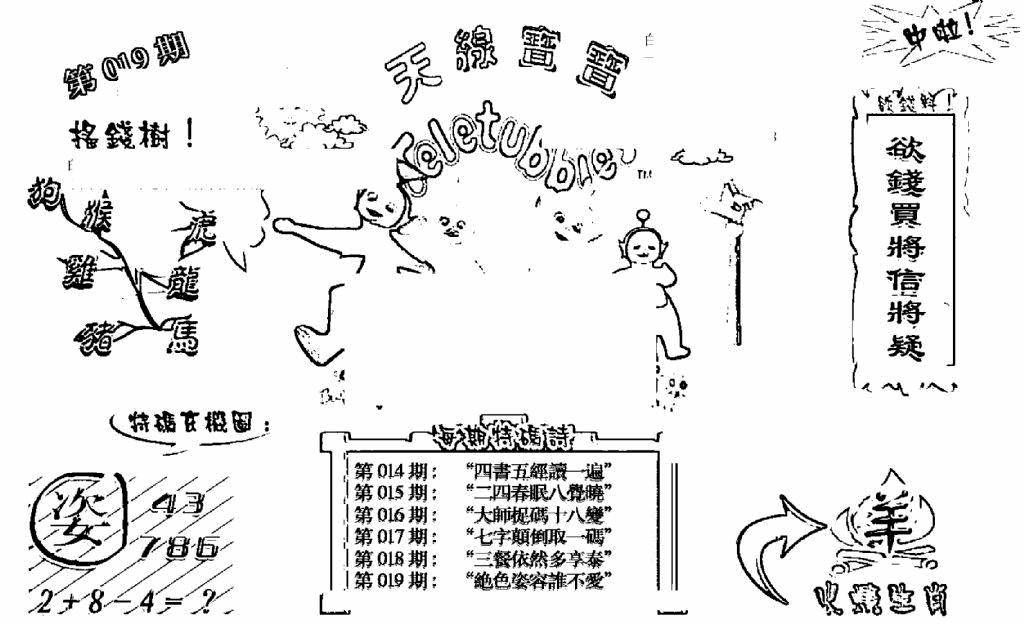 第019期
天線寶寶
中啦！
Teletubbie
TM
搖錢樹！
狗
猴
虎
雞
龍
豬
馬
欲錢買將信將疑
特碼玄機圖：
姿
43
786
2+8-4=?
每期特碼詩
第014期：“四書五經讀一遍”
第015期：“二四春眠八覺曉”
第016期：“大師捉碼十八變”
第017期：“七字顛倒取一碼”
第018期：“三餐依然多享泰”
第019期：“絕色姿容誰不愛”
羊
火燒生肖